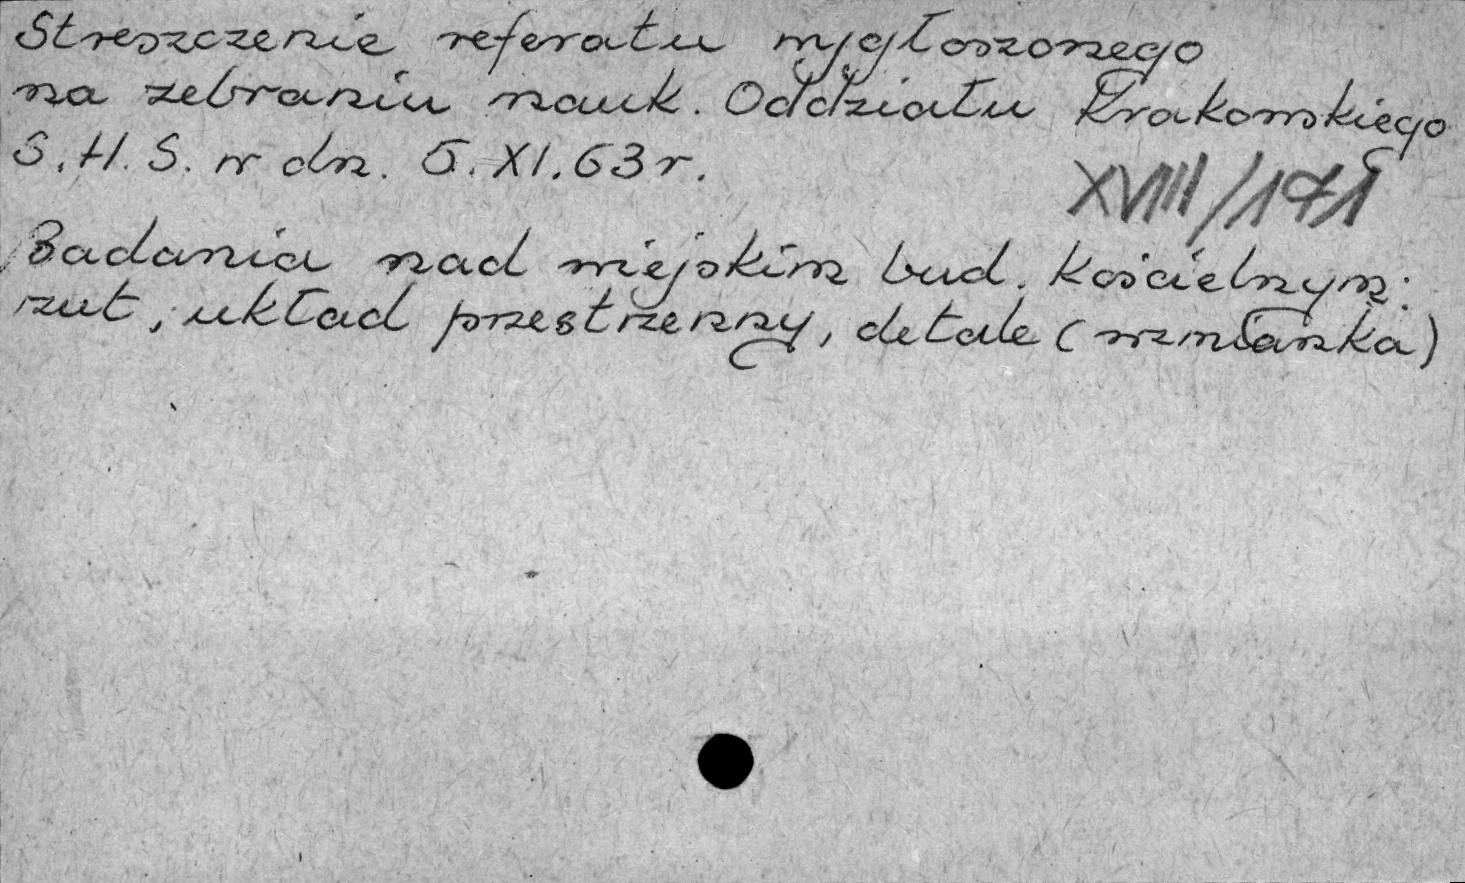 Streszczenie referatu wygłoszonego
na zebraniu nauk. Oddziału Krakowskiego
S.H.S. w dn. 5.XI.63 r.
XVIII/171
Badania nad miejskim bud. kościelnym:
rzut, układ przestrzenny, detale (wzmianka)